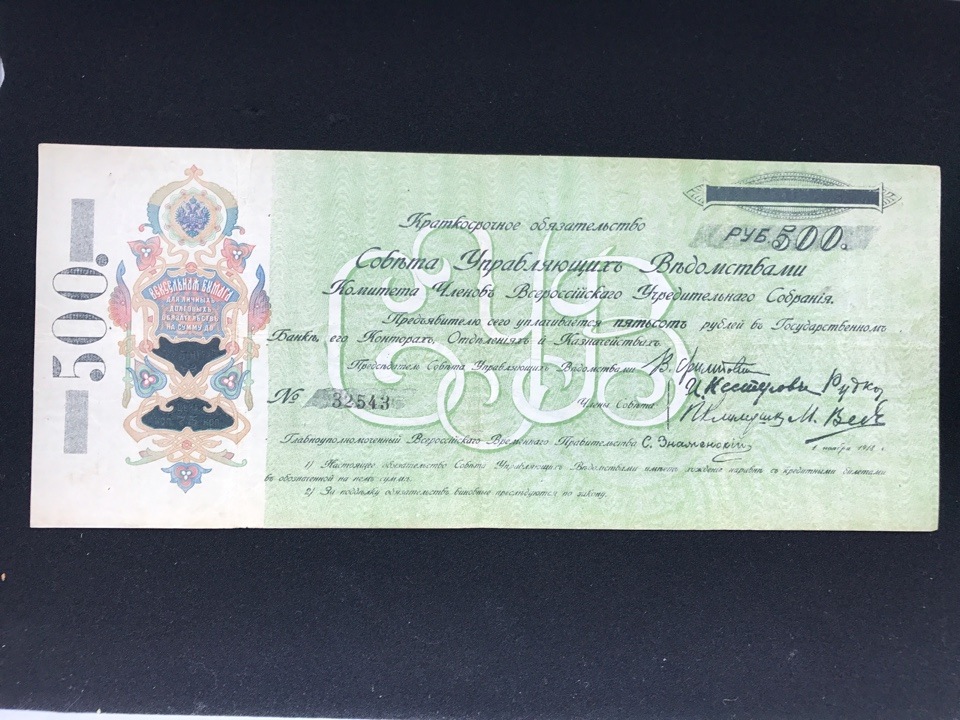 500.
ВЕКСЕЛЬНАЯ БУМАГА
ДЛЯ ЛИЧНЫХЪ
ДОЛГОВЫХЪ
ОБЯЗАТЕЛЬСТВЪ
НА СУММУ ДО
РУБ. 500.
Краткосрочное обязательство
Совѣта Управляющихъ Вѣдомствами
Комитета Членовъ Всероссійскаго Учредительнаго Собранія.
Предъявителю сего уплачивается пятьсотъ рублей въ Государственномъ
Банкѣ, его Конторахъ, Отдѣленіяхъ и Казначействахъ.
Предсѣдатель Совѣта Управляющихъ Вѣдомствами
№ 32543
Члены Совѣта
Главноуполномоченный Всероссійскаго Временнаго Правительства С. Знаменскій
1 ноября 1918 г.
1) Настоящее обязательство Совѣта Управляющихъ Вѣдомствами имѣетъ хожденіе наравнѣ съ кредитными билетами
въ обозначенной на немъ суммѣ.
2) За поддѣлку обязательствъ виновные преслѣдуются по закону.